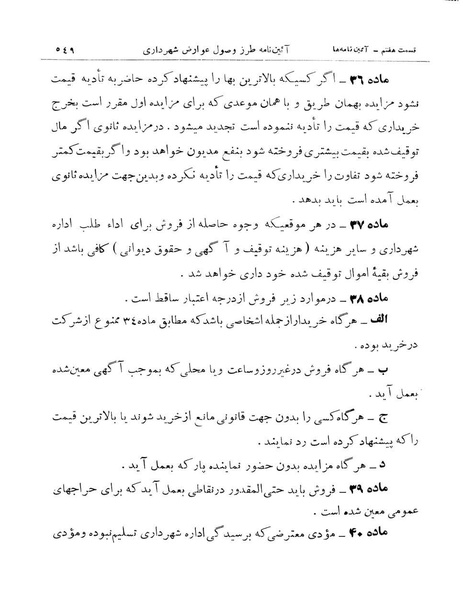 قسمت هفتم – آئین‌نامه‌ها
آئین‌نامه طرز وصول عوارض شهرداری
۵٤۹
ماده ۳۶ – اگر کسیکه بالاترین بها را پیشنهاد کرده حاضر به تأدیه قیمت
نشود مزایده بهمان طریق و با همان موعدی که برای مزایده اول مقرر است بخرج
خریداری که قیمت را تأدیه ننموده است تجدید میشود . درمزایده ثانوی اگر مال
توقیف شده بقیمت بیشتری فروخته شود بنفع مدیون خواهد بود واگر بقیمت کمتر
فروخته شود تفاوت را خریداری‌که قیمت را تأدیه نکرده وبدین‌جهت مزایده ثانوی
بعمل آمده است باید بدهد .
ماده ۳۷ – در هر موقعیکه وجوه حاصله از فروش برای اداء طلب اداره
شهرداری و سایر هزینه ( هزینه توقیف و آگهی و حقوق دیوانی ) کافی باشد از
فروش بقیهٔ اموال توقیف شده خود داری خواهد شد .
ماده ۳۸ – درموارد زیر فروش ازدرجه اعتبار ساقط است .
الف – هرگاه خریدارازجمله اشخاصی باشدکه مطابق ماده۳٤ ممنوع ازشرکت
درخرید بوده .
ب – هرگاه فروش درغیرروزوساعت ویا محلی که بموجب آگهی معین‌شده
بعمل آید .
ج – هرگاه‌کسی را بدون جهت قانونی مانع ازخرید شوند یا بالاترین قیمت
راکه پیشنهاد کرده است رد نمایند .
د – هرگاه مزایده بدون حضور نماینده پارکه بعمل آید .
ماده ۳۹ – فروش باید حتی‌المقدور درنقاطی بعمل آید که برای حراجهای
عمومی معین شده است .
ماده ۴۰ – مؤدی معترضی‌که برسیدگی اداره شهرداری تسلیم‌نبوده ومؤدی